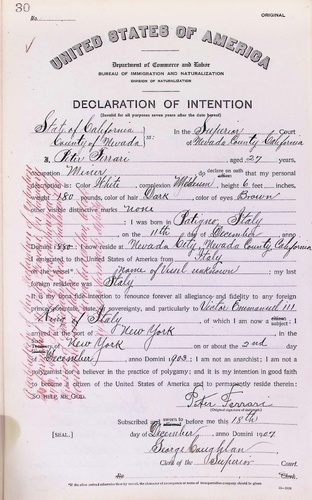 30
ORIGINAL
No.
UNITED STATES OF AMERICA
Department of Commerce and Labor
BUREAU OF IMMIGRATION AND NATURALIZATION
DIVISION OF NATURALIZATION
DECLARATION OF INTENTION
(Invalid for all purposes seven years after the date hereof)
State of California
County of Nevada ss:
In the Superior Court
of Nevada County California
I, Peter Ferrari, aged 27 years,
occupation Miner, do declare on oath that my personal
description is: Color White, complexion Medium, height 6 feet inches,
weight 180 pounds, color of hair Dark, color of eyes Brown
other visible distinctive marks none
I was born in Italy
on the 11th day of December, anno
Domini 1880; I now reside at Nevada City, Nevada County, California
I emigrated to the United States of America from Italy
on the vessel name of vessel unknown; my last
foreign residence was Italy
It is my bona fide intention to renounce forever all allegiance and fidelity to any foreign
prince, potentate, state, or sovereignty, and particularly to Victor Emmanuel III
King of Italy, of which I am now a subject; I
arrived at the port of New York, in the
State of New York on or about the 2nd day
of December, anno Domini 1903; I am not an anarchist; I am not a
polygamist nor a believer in the practice of polygamy; and it is my intention in good faith
to become a citizen of the United States of America and to permanently reside therein:
SO HELP ME GOD.
Peter Ferrari
(Original signature of declarant.)
Subscribed and sworn to before me this 18th
[SEAL.] day of December, anno Domini 1907
George Coughlan
Clerk of the Superior Court.